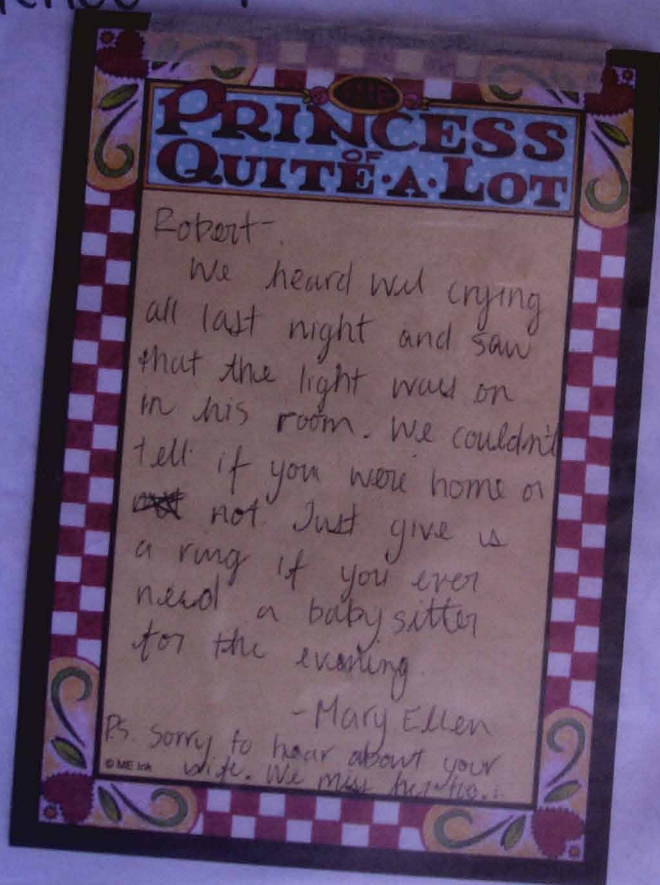 THE
PRINCESS
OF
QUITE·A·LOT
Robert-
We heard wul crying
all last night and saw
that the light was on
in his room. We couldn't
tell if you were home or
not. Just give is
a ring if you ever
need a babysitter
for the evening.
-Mary Ellen
P.S. sorry to hear about your
wife. We miss her too.
© ME Ink